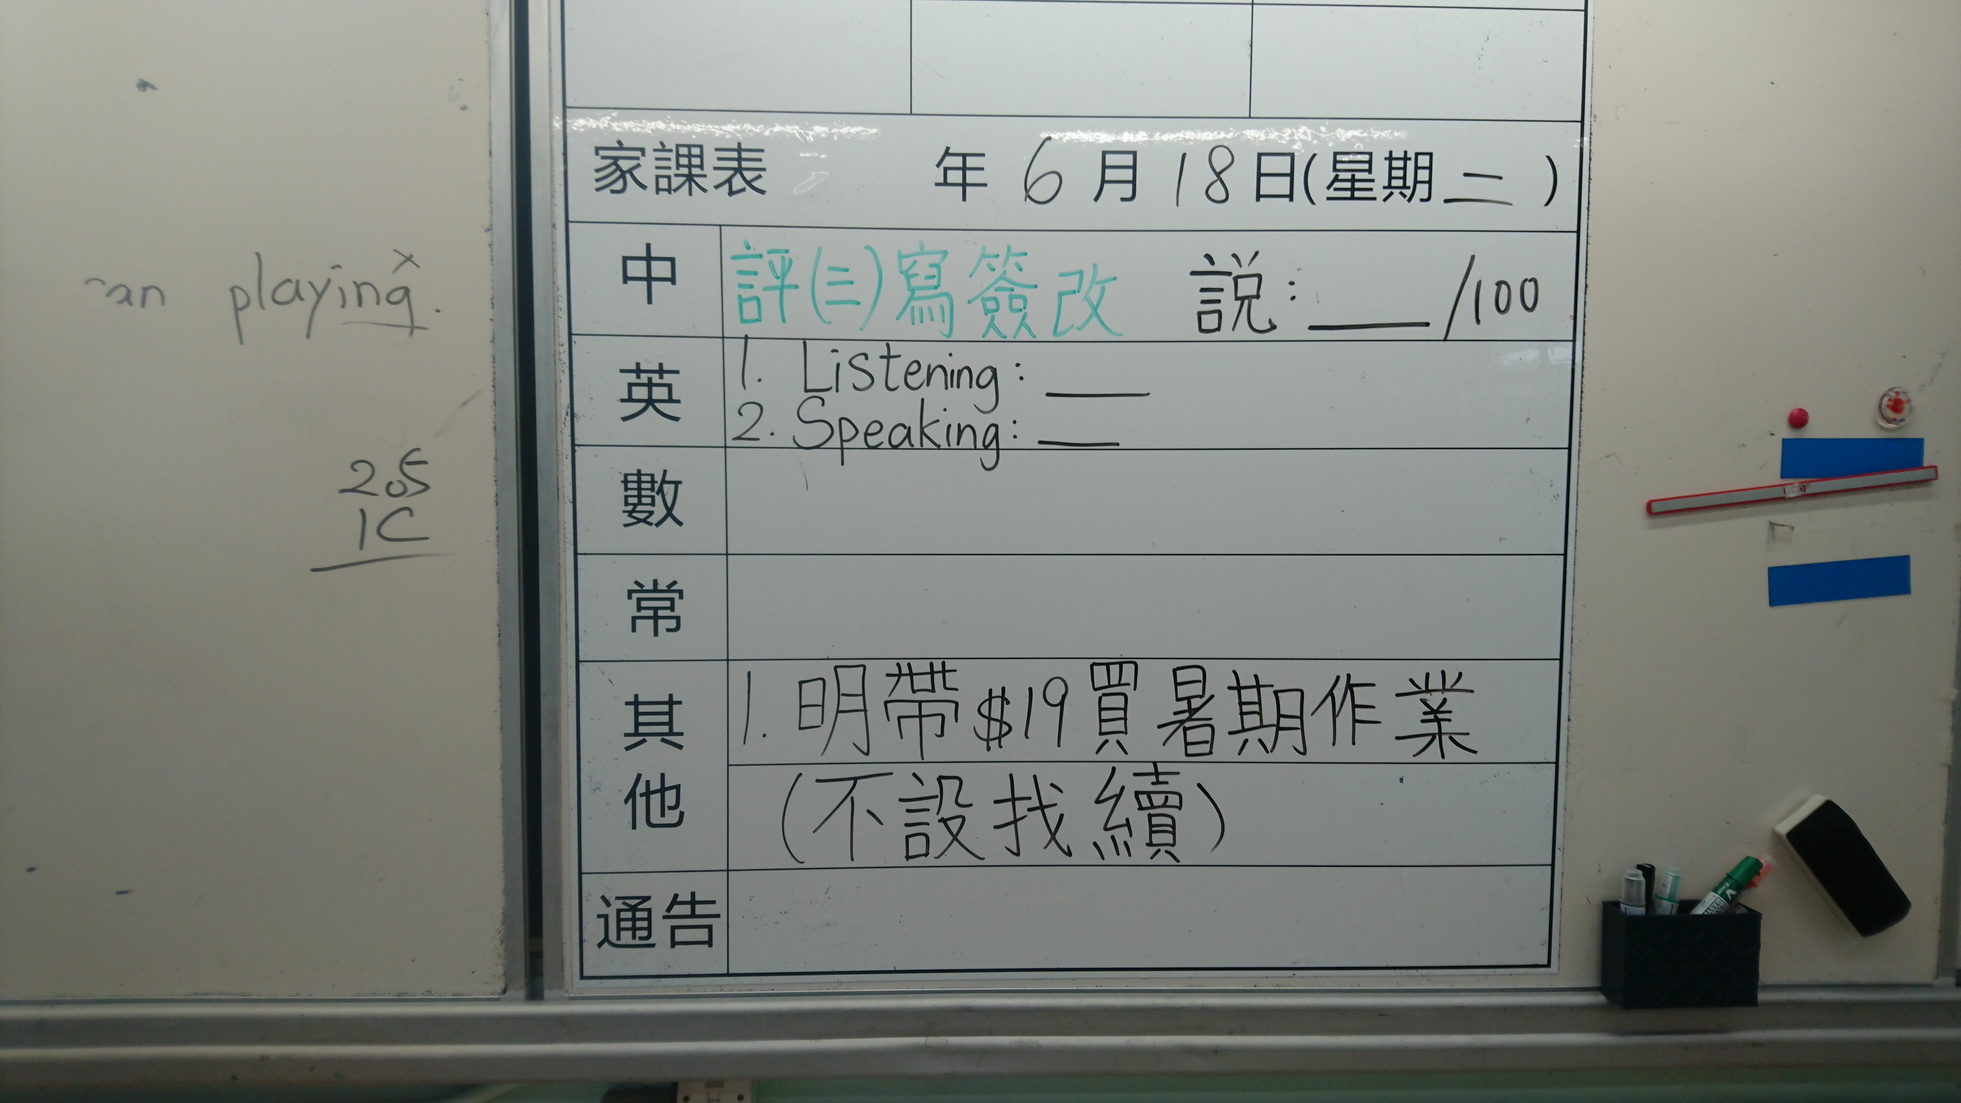 家課表 年 6 月 18 日(星期二)
中 評(三)寫簽改 説:___/100
英 1. Listening: ___
2. Speaking: ___
數
常
其他 1. 明帶$19買暑期作業
(不設找續)
通告
playing.
205
1C